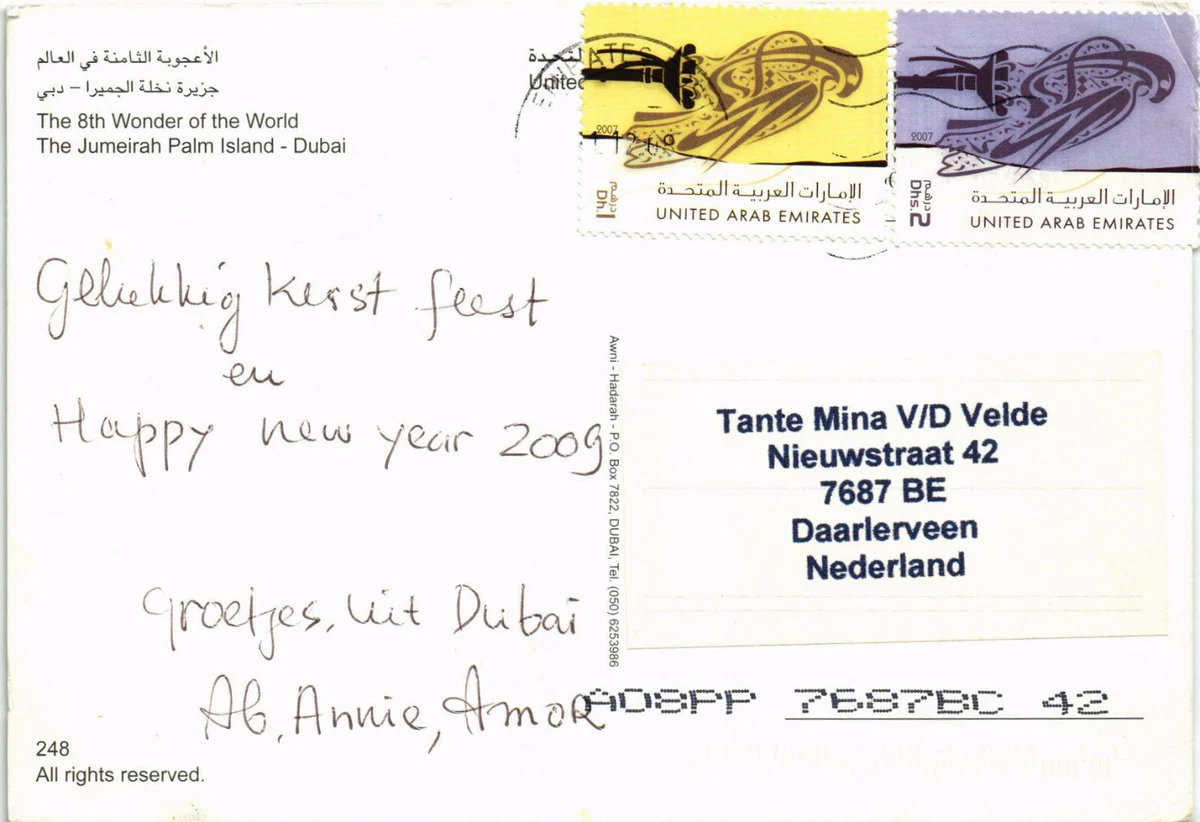 الأعجوبة الثامنة في العالم
جزيرة نخلة الجميرا – دبي
The 8th Wonder of the World
The Jumeirah Palm Island - Dubai
المتحدة
United
EMIRATES
2007
درهم
Dh.1
الإمارات العربية المتحدة
UNITED ARAB EMIRATES
2007
درهم
Dhs.2
الإمارات العربية المتحدة
UNITED ARAB EMIRATES
Gelukkig Kerst feest
en
Happy new year 2009
Groetjes, uit Dubai
Ab, Annie, Amor
248
All rights reserved.
Awni - Hadarah - P.O. Box 7822, DUBAI, Tel. (050) 6253986
Tante Mina V/D Velde
Nieuwstraat 42
7687 BE
Daarlerveen
Nederland
AD8PP 7687BC 42